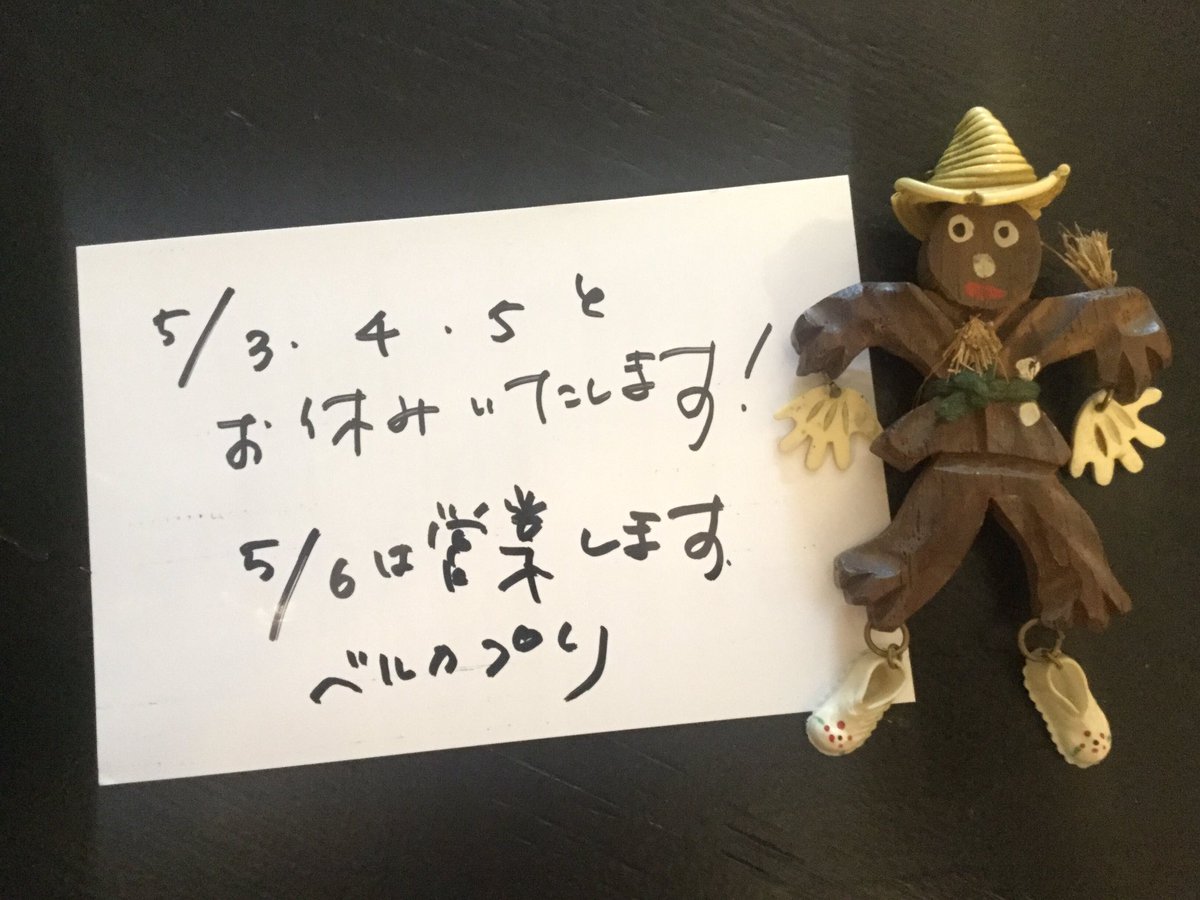 5/3.4.5と
お休みいたします!
5/6は営業します
ベルカプリ